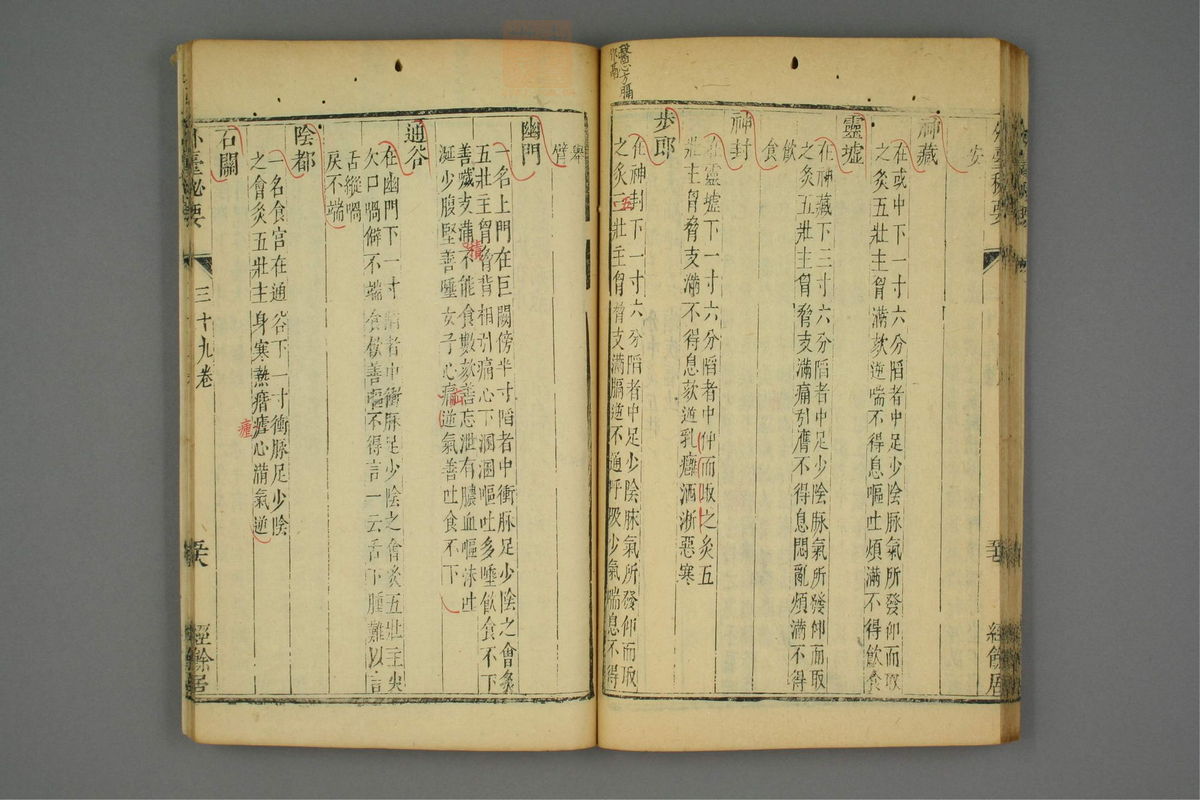 醫心方膈
外臺秘要
安
神藏
在或中下一寸六分陷者中足少陰脉氣所發仰而取
之灸五壯主胷滿欬逆喘不得息嘔吐煩滿不得飲食
靈墟
在神藏下三寸六分陷者中足少陰脉氣所發仰而取
之灸五壯主胷脅支滿痛引膺不得息悶亂煩滿不得
飲
食
神封
在靈墟下一寸六分陷者中仰而取之灸五
壯主胷脅支滿不得息欬逆乳癰洒淅惡寒
步郎
在神封下一寸六分陷者中足少陰脉氣所發仰而取
之灸五壯主胷脅支滿膈逆不通呼吸少氣喘息不得
舉
臂
幽門
一名上門在巨闕傍半寸陷者中衝脉足少陰之會灸
五壯主胷脅背相引痛心下溷溷嘔吐多唾飲食不下
善噦支滿不能食數欬善忘泄有膿血嘔沫吐
積
涎少腹堅善唾女子心痛逆氣善吐食不下
通谷
在幽門下一寸陷者中衝脉足少陰之會灸五壯主失
欠口喎僻不端食飲善嘔不得言一云舌下腫難以言
舌縱喎
戾不端
陰都
一名食宮在通谷下一寸衝脉足少陰
之會灸五壯主身寒熱瘧心滿氣逆
瘧
石關
外臺秘要
三十九卷
經餘居
經餘居